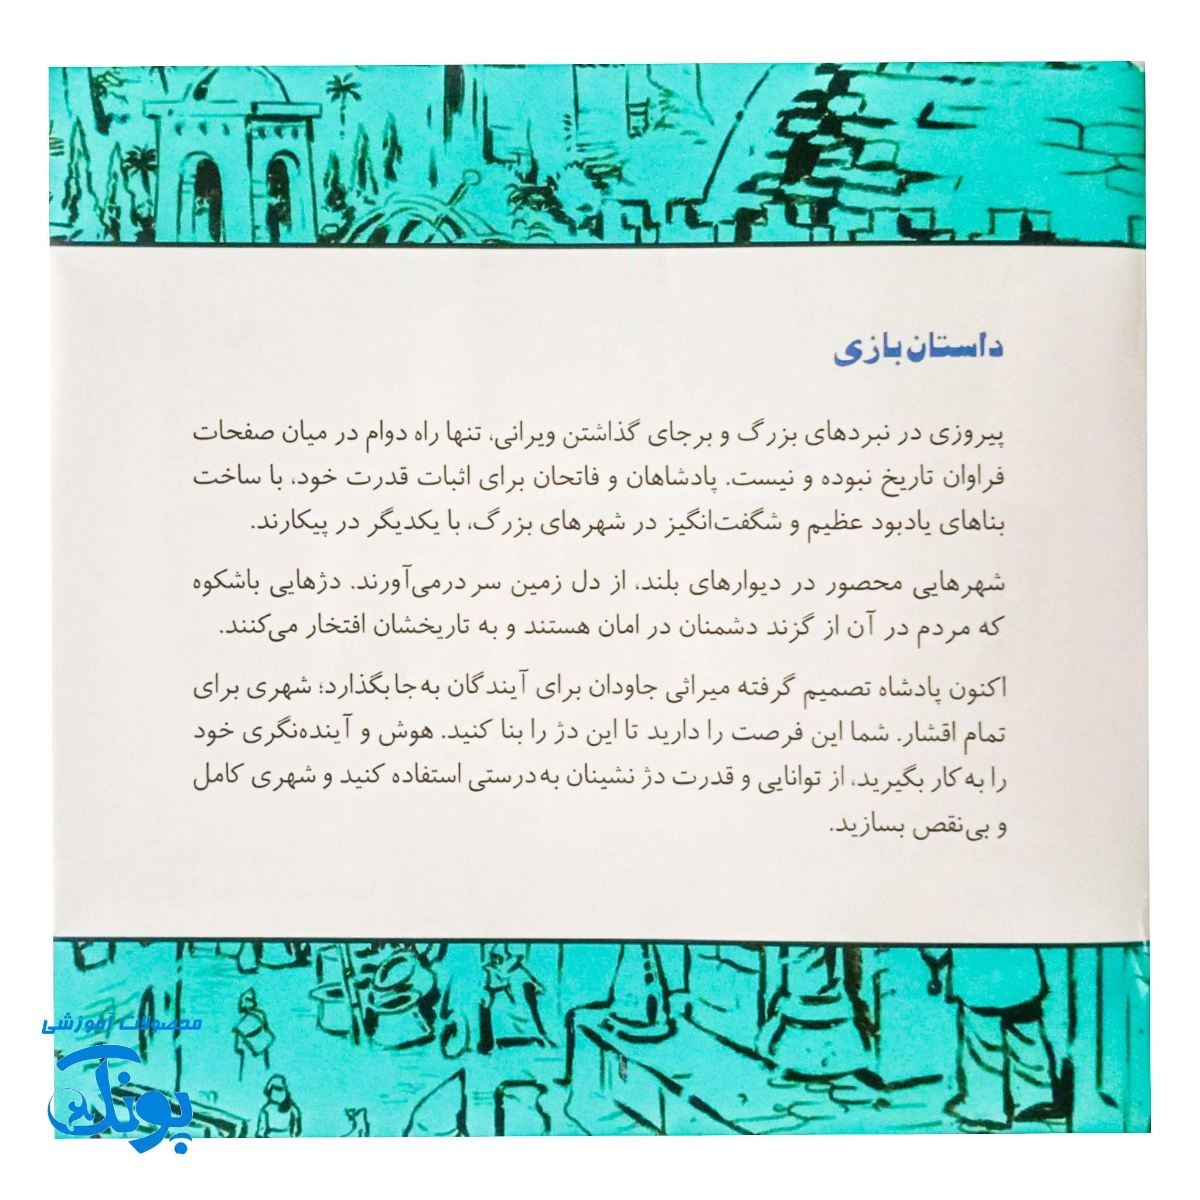 داستان بازی
پیروزی در نبردهای بزرگ و برجای گذاشتن ویرانی، تنها راه دوام در میان صفحات
فراوان تاریخ نبوده و نیست. پادشاهان و فاتحان برای اثبات قدرت خود، با ساخت
بناهای یادبود عظیم و شگفت‌انگیز در شهرهای بزرگ، با یکدیگر در پیکارند.
شهرهایی محصور در دیوارهای بلند، از دل زمین سر درمی‌آورند. دژهایی باشکوه
که مردم در آن از گزند دشمنان در امان هستند و به تاریخشان افتخار می‌کنند.
اکنون پادشاه تصمیم گرفته میراثی جاودان برای آیندگان به‌جا بگذارد؛ شهری برای
تمام اقشار. شما این فرصت را دارید تا این دژ را بنا کنید. هوش و آینده‌نگری خود
را به کار بگیرید، از توانایی و قدرت دژ نشینان به‌درستی استفاده کنید و شهری کامل
و بی‌نقص بسازید.
محصولات آموزشی
پونک